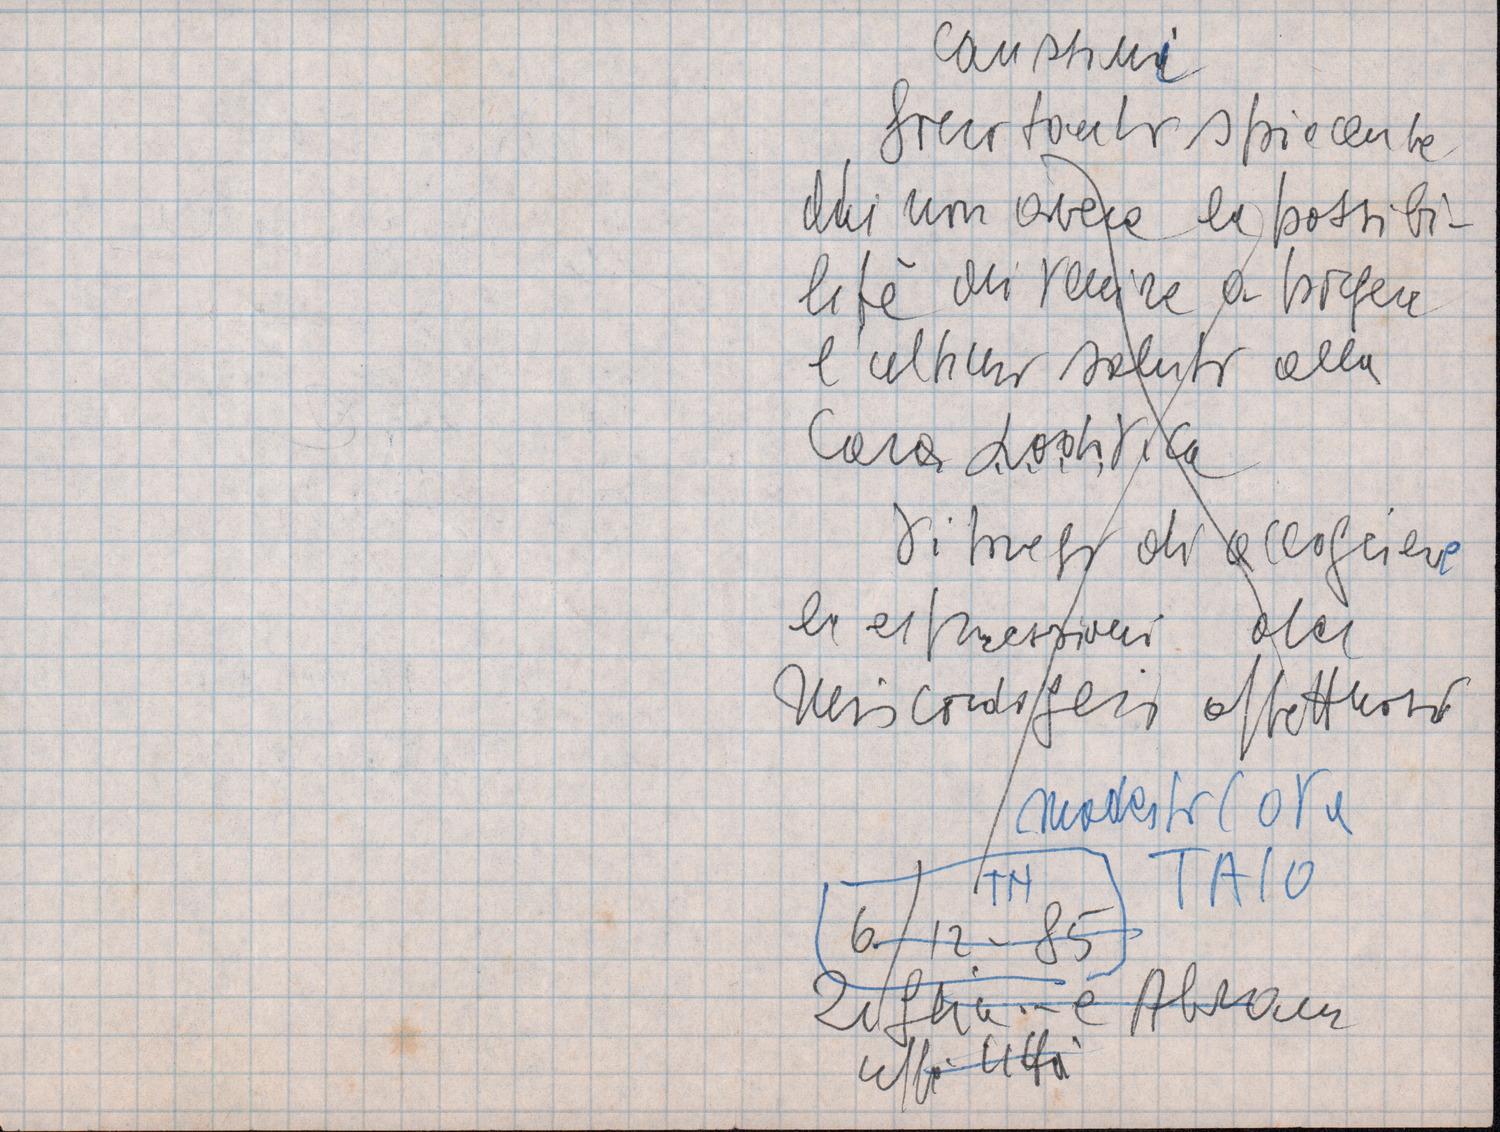 Carissimi
Sono tanto spiacente
di non avere la possibi-
lità di venire a porgere
l'ultimo saluto alla
Cara Lodovica
Vi prego di accogliere
le espressioni del
mio cordoglio affettuoso
Modesto Cova
TAIO
TN
6-12-85
Abram